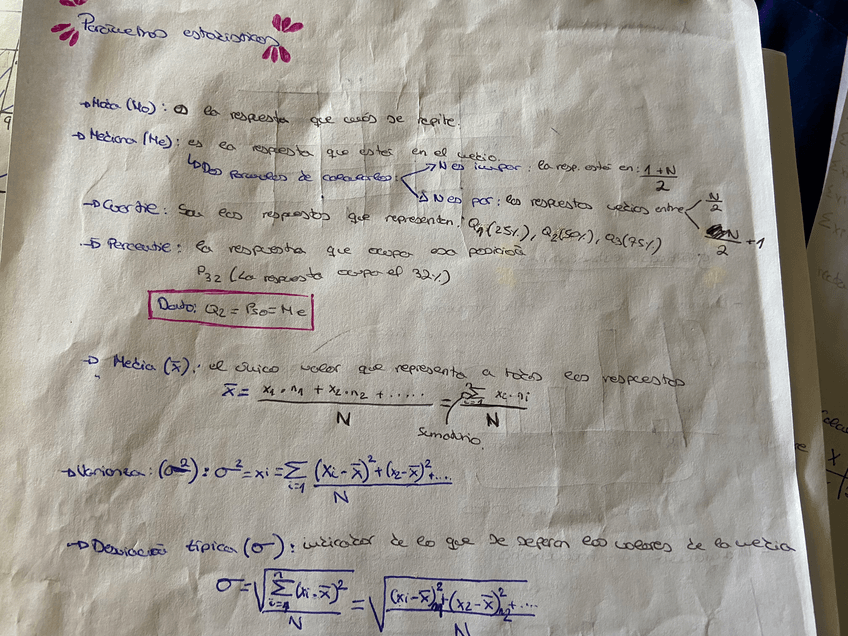 Parámetros estadísticos
→ Moda (Mo): es la respuesta que más se repite.
→ Mediana (Me): es la respuesta que está en el medio.
↳ Dos formas de calcularlos: N es impar: la resp. está en: (1+N)/2
N es par: las respuestas medias entre N/2 y N/2 + 1
→ Cuartil: Son las respuestas que representan: Q1 (25%), Q2 (50%), Q3 (75%)
→ Percentil: la respuesta que ocupa esa posición
P32 (La respuesta ocupa el 32%)
Dato: Q2 = P50 = Me
→ Media (x̄): el único valor que representa a todas las respuestas
x̄ = (x1 · n1 + x2 · n2 + .....)/N = (Σ i=1 n xi · ni)/N
Sumatorio.
→ Varianza: (σ²): σ² = xi = Σ i=1 ((xi - x̄)² + (x2 - x̄)² + ...)/N
→ Desviación típica (σ): indicador de lo que se separan los valores de la media
σ = √((Σ i=1 n (xi - x̄)²)/N) = √(((xi - x̄)² n1 + (x2 - x̄)² n2 + ...)/N)